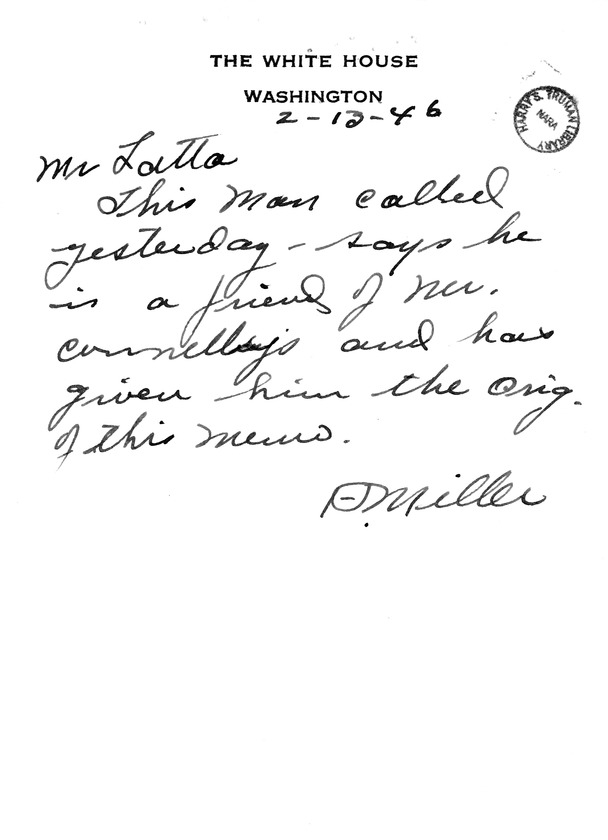 THE WHITE HOUSE
WASHINGTON
HARRY S. TRUMAN LIBRARY
NARA
2-13-46
Mr Latta
This man called
yesterday - says he
is a friend of Mr.
Connelly's and has
given him the orig.
of this memo.
Miller